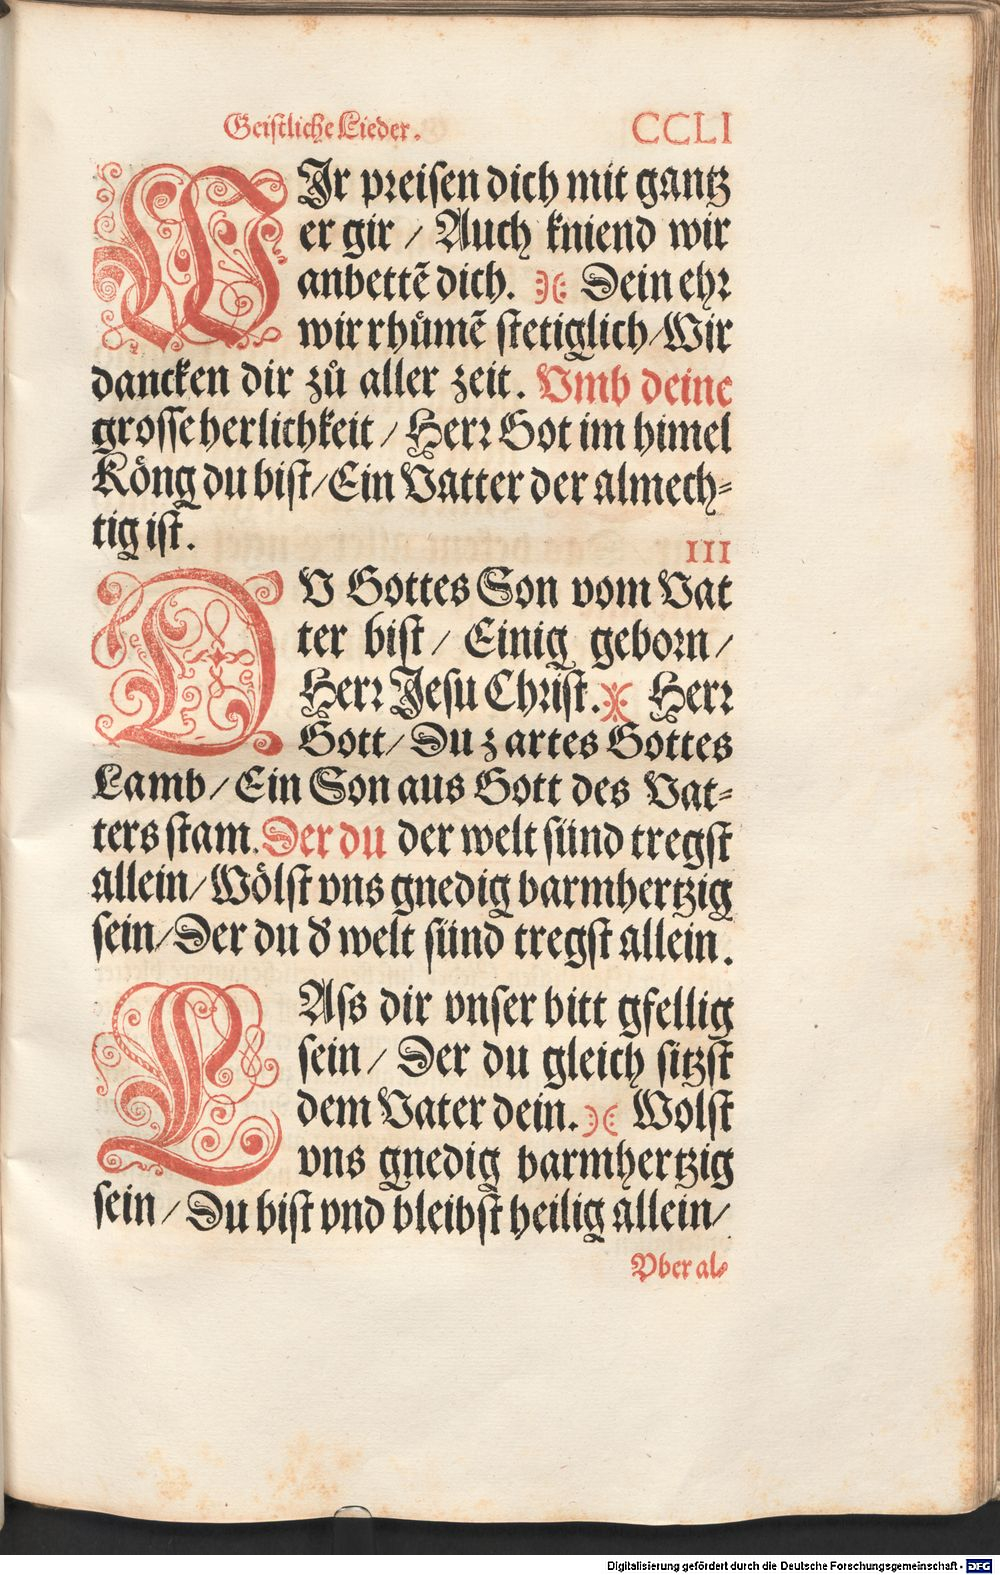 Geistliche Lieder. CCLI
WJr preisen dich mit gantz
er gir / Auch kniend wir
anbettẽ dich. Dein ehr
wir rhůmẽ stetiglich / Wir
dancken dir zů aller zeit. Vmb deine
grosse herlichkeit / Herr Got im himel
Köng du bist / Ein Vatter der almech-
tig ist.
III
DV Gottes Son vom Vat
ter bist / Einig geborn /
Herr Jesu Christ. Herr
Gott / Du zartes Gottes
Lamb / Ein Son aus Gott des Vat-
ters stam. Der du der welt sünd tregst
allein / Wölst vns gnedig barmhertzig
sein / Der du d' welt sünd tregst allein.
LAss dir vnser bitt gfellig
sein / Der du gleich sitzst
dem Vater dein. Wolst
vns gnedig barmhertzig
sein / Du bist vnd bleibst heilig allein /
Vber al-
Digitalisierung gefördert durch die Deutsche Forschungsgemeinschaft - DFG